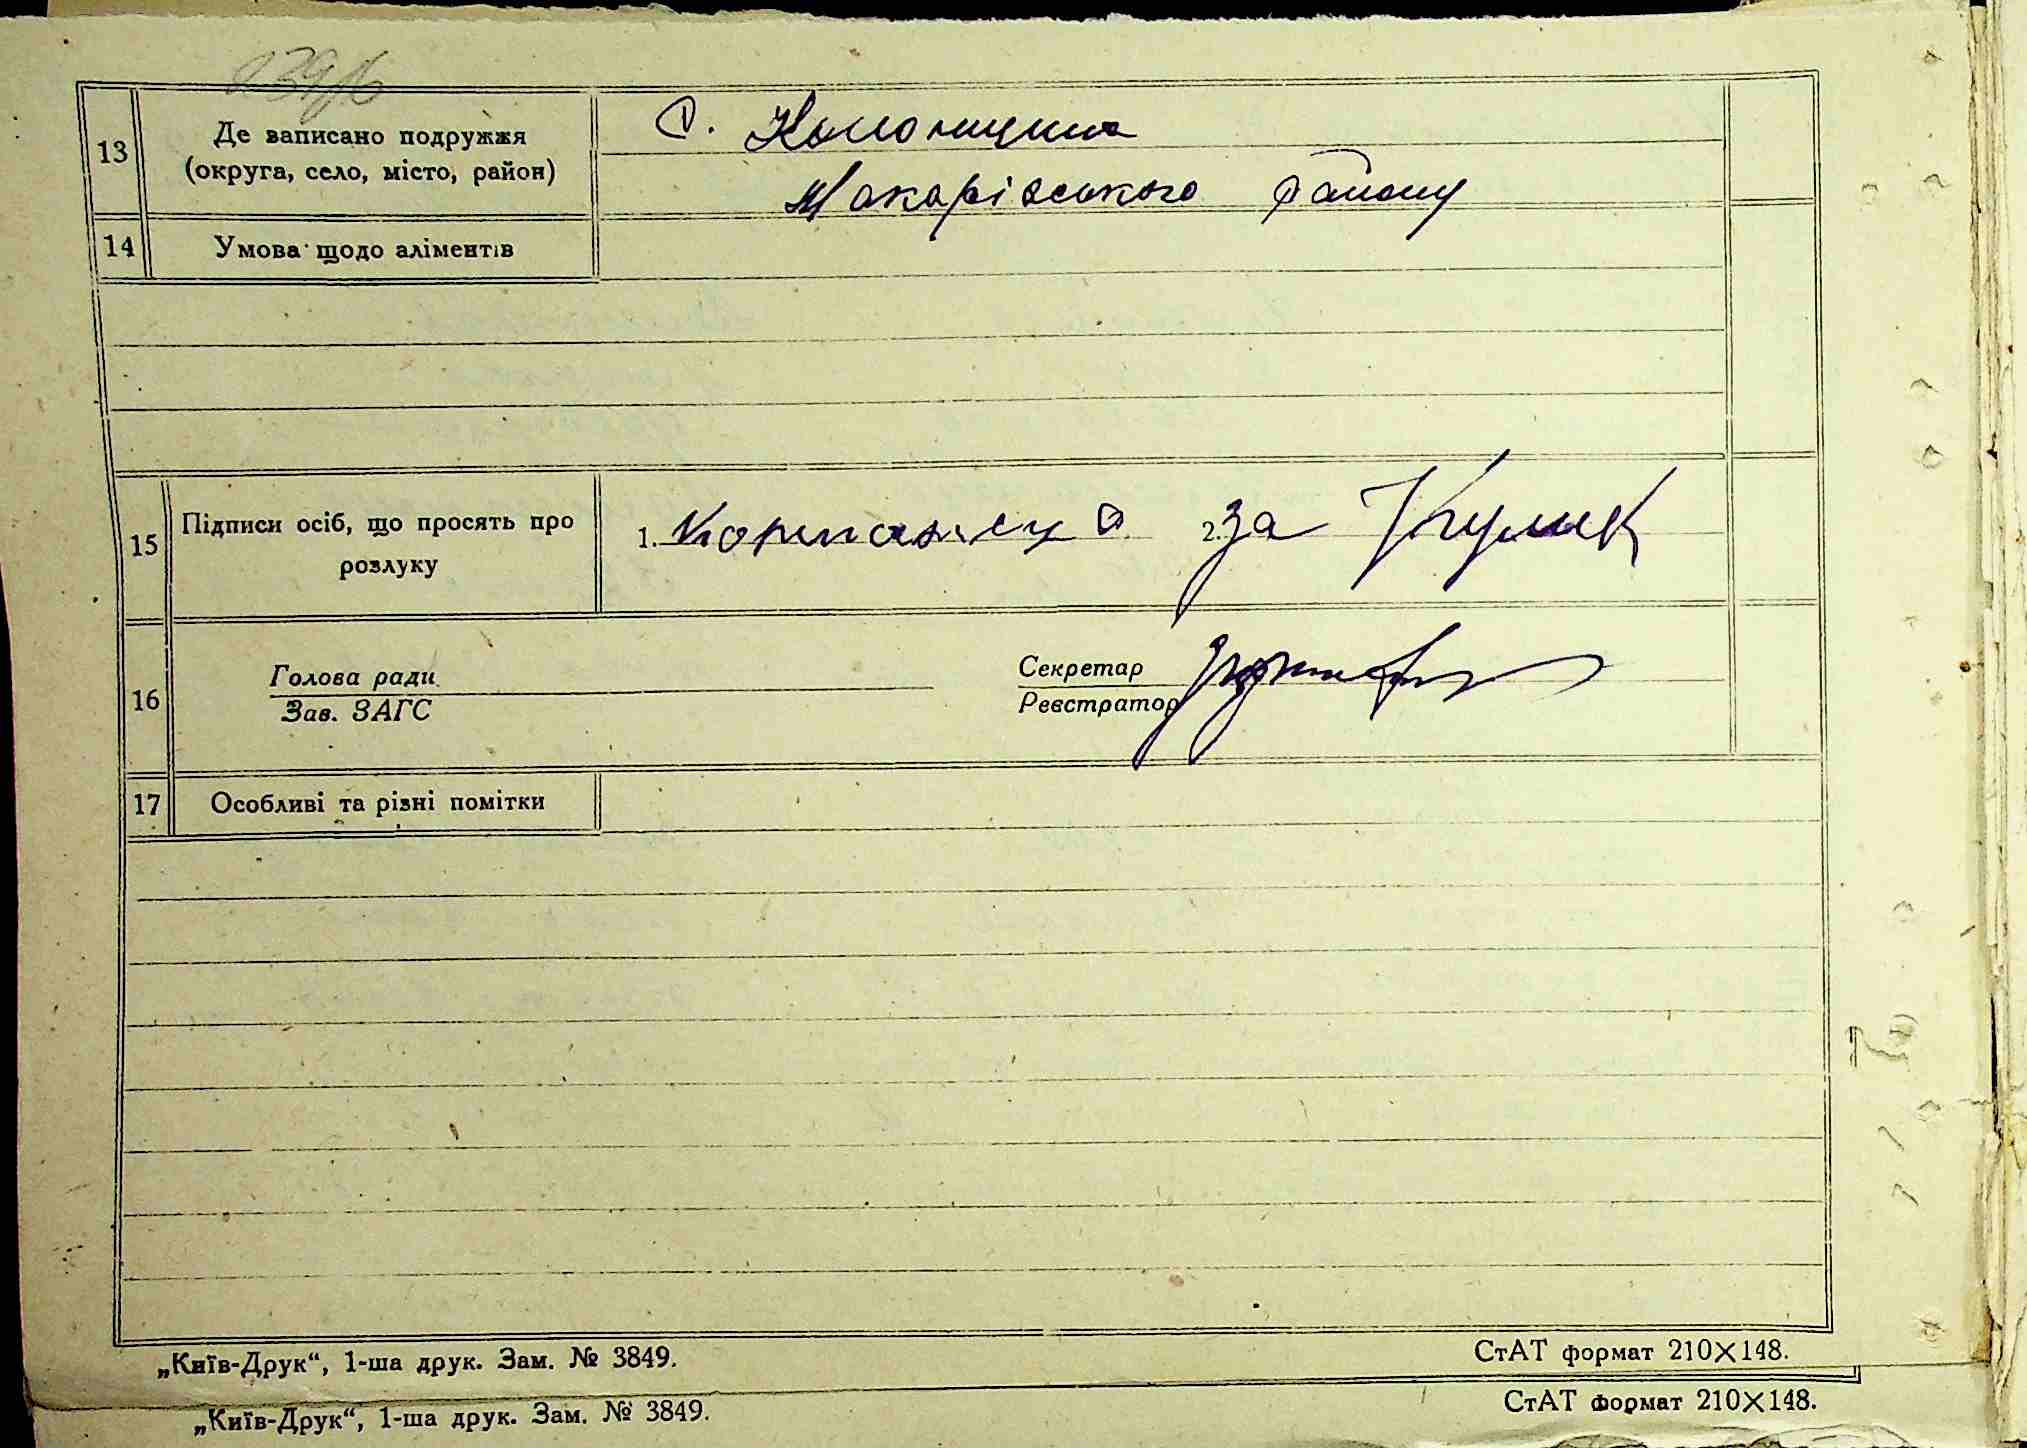 13 Де записано подружжя
(округа, село, місто, район)
с. Колонщина
Макарівського району
14 Умова щодо аліментів
15 Підписи осіб, що просять про
розлуку
1. 2. за Кулик
16 Голова ради
Зав. ЗАГС
Секретар
Реєстратор
17 Особливі та різні помітки
„Київ-Друк“, 1-ша друк. Зам. № 3849. СтАТ формат 210×148.
„Київ-Друк“, 1-ша друк. Зам. № 3849. СтАТ формат 210×148.